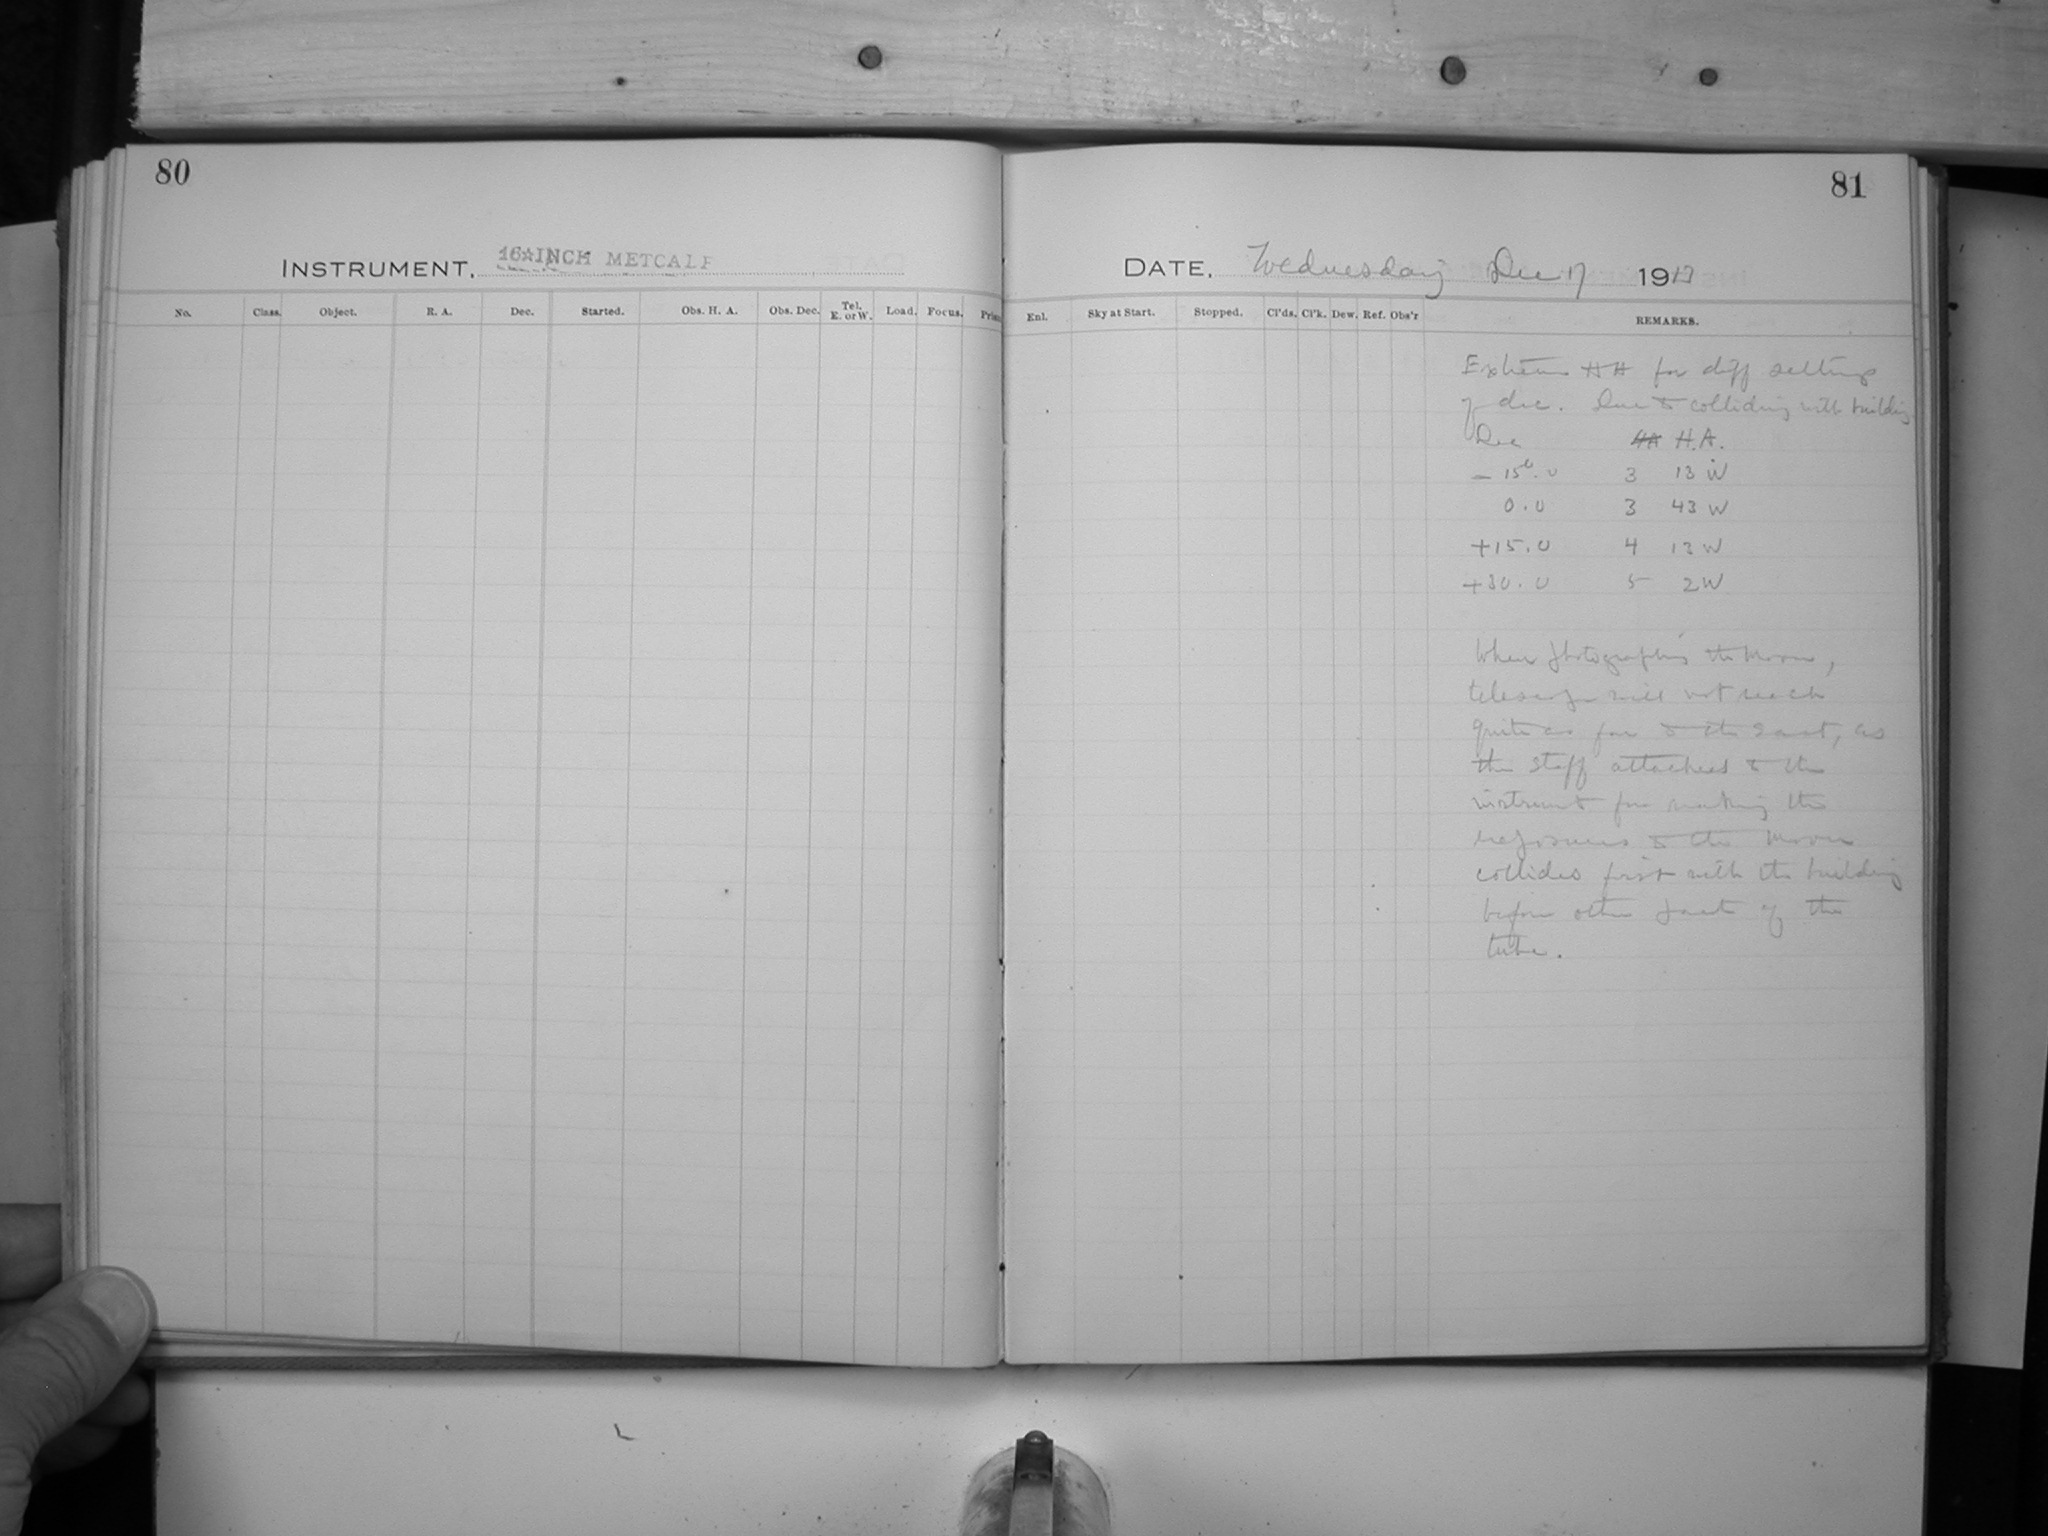 80
INSTRUMENT, 16☆INCH METCALF
No. Class. Object. R. A. Dec. Started. Obs. H. A. Obs. Dec. Tel. E. or W. Load. Focus.
81
DATE, Wednesday Dec 17 19
Enl. Sky at Start. Stopped. Cl'ds. Cl'k. Dew. Ref. Obs'r REMARKS.
Extreme for diff settings
of dec. Due to colliding with building
Dec HA H.A.
- 15°.0 3 13 W
0.0 3 43 W
+15.0 4 13 W
+30.0 5 2 W
When photographing the Moon,
telescope will not reach
quite as far to the East, as
the staff attached to the
instrument for making the
exposures to the Moon
collides first with the building
before other part of the
tube.